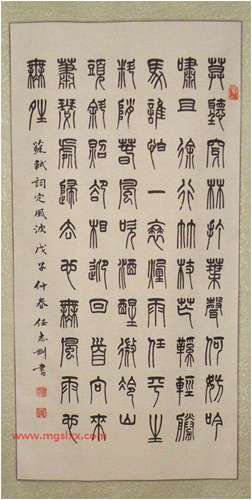 莫聽穿林打葉聲何妨吟
嘯且徐行竹杖芒鞋輕勝
馬誰怕一蓑煙雨任平生
料峭春風吹酒醒微冷山
頭斜照卻相迎回首向來
蕭瑟處歸去也無風雨也
無晴
蘇軾詞定風波 戊子仲春任志剛書
www.mgslxx.com